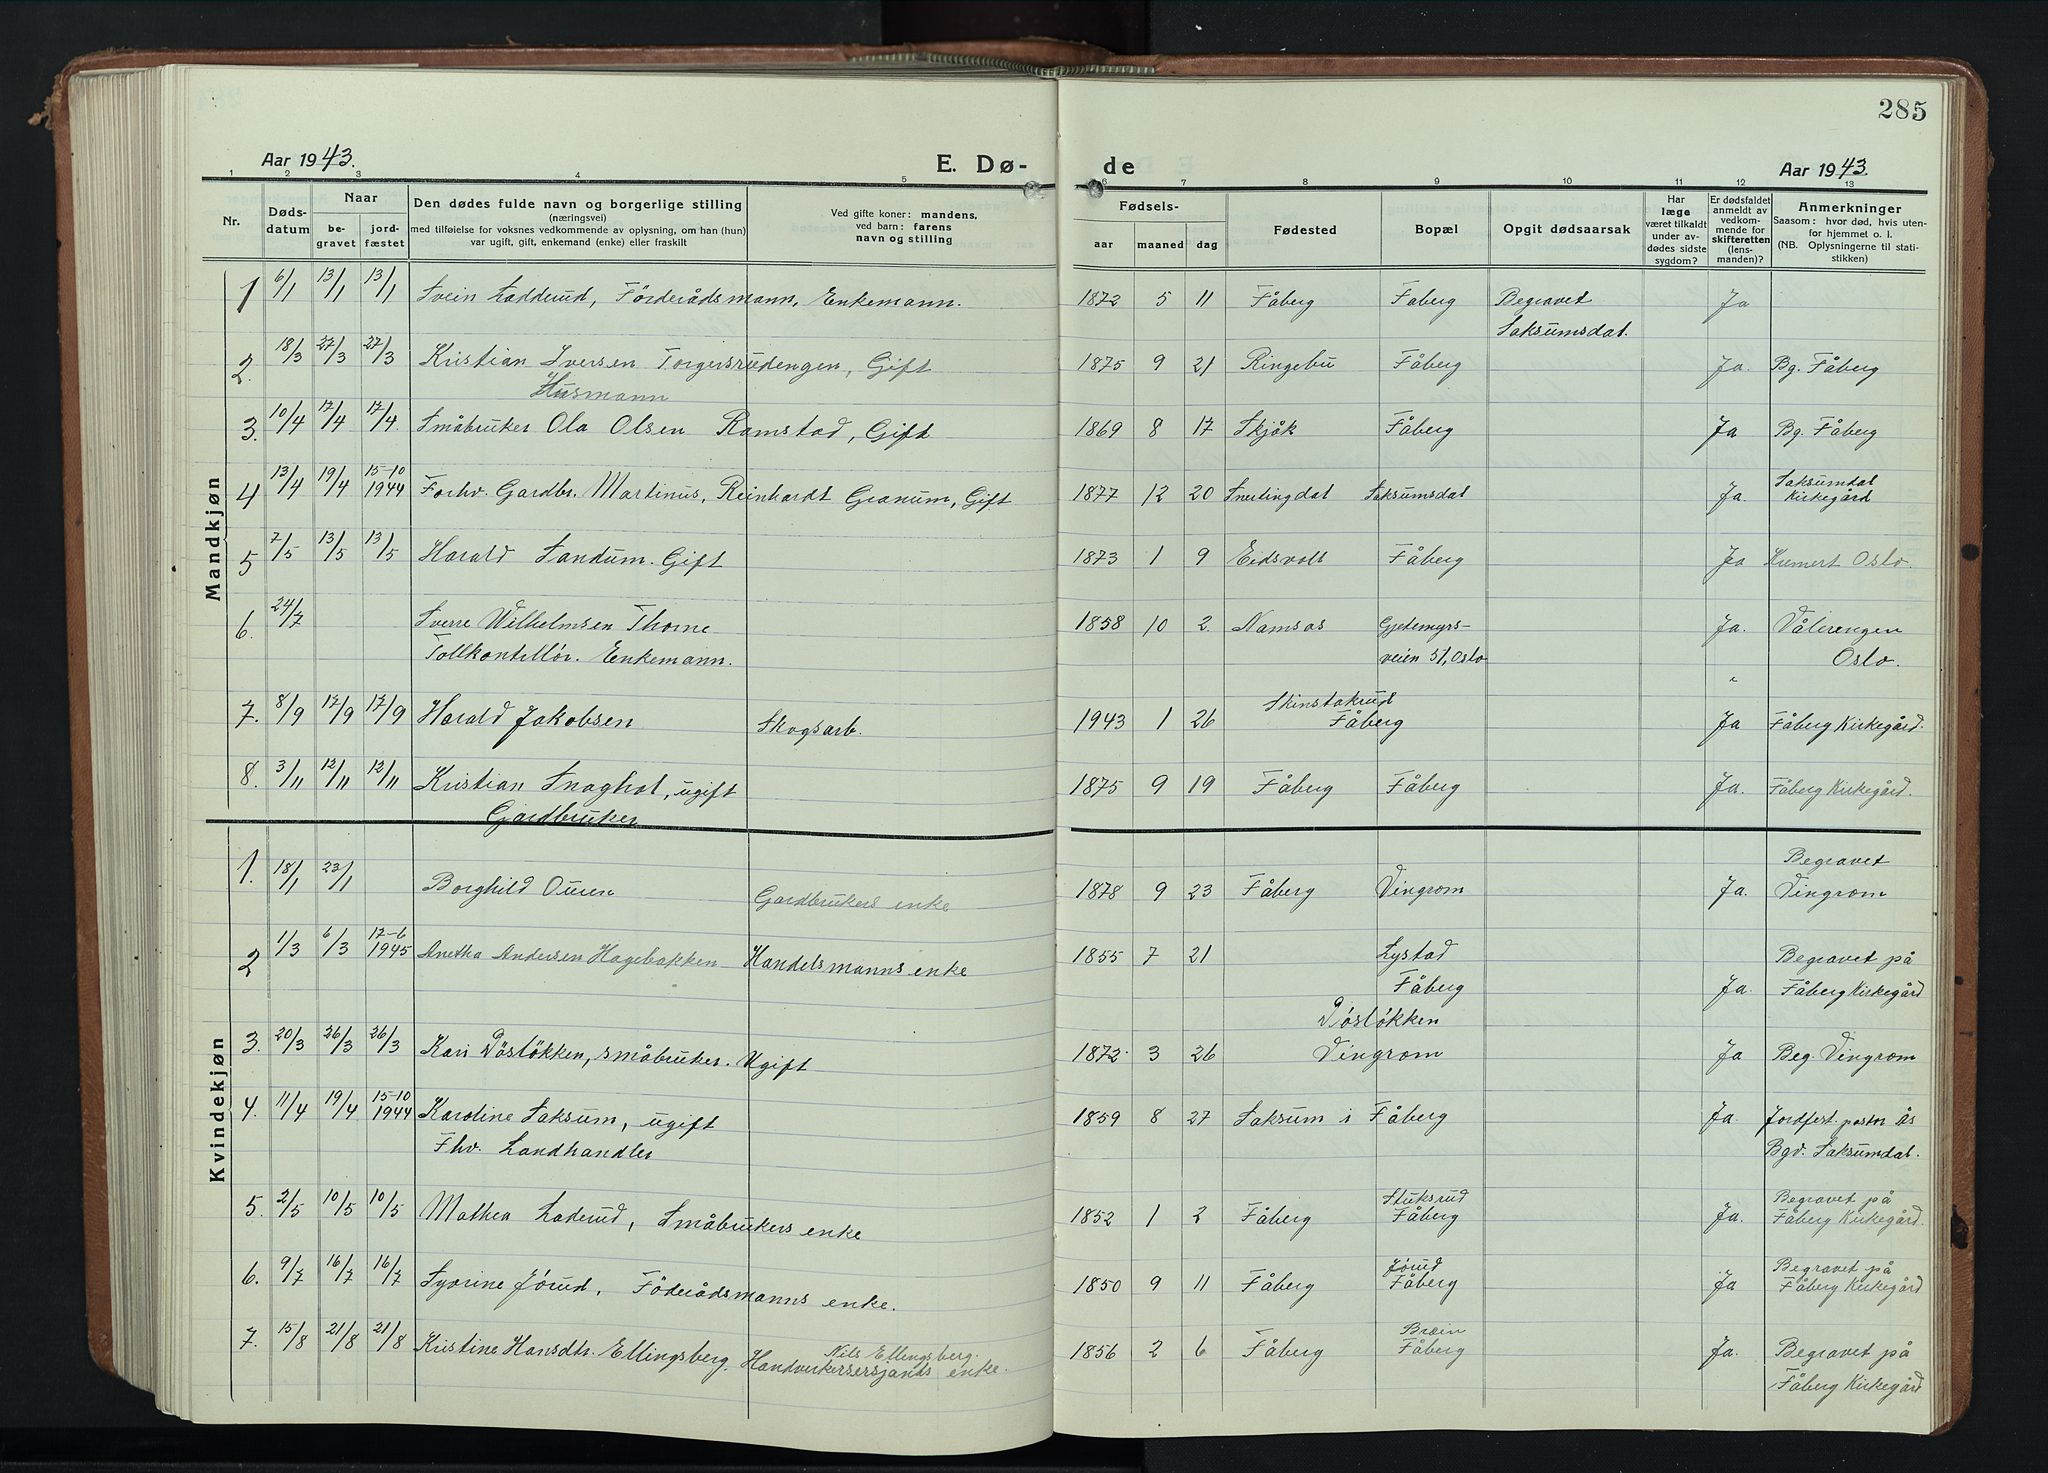 285
Aar 1943. E. Dø- de Aar 1943.
1 2 3 4 5 6 7 8 9 10 11 12 13
Nr. Døds-datum Naar be-gravet jord-fæstet
Den dødes fulde navn og borgerlige stilling
(næringsvei)
med tilføielse for voksnes vedkommende av oplysning, om han (hun)
var ugift, gift, enkemand (enke) eller fraskilt
Ved gifte koner: mandens,
ved barn: farens
navn og stilling
Fødsels- aar maaned dag
Fødested Bopæl Opgit dødsaarsak
Har læge været tilkaldt under av-dødes sidste sygdom?
Er dødsfaldet anmeldt av vedkom-mende for skifteretten (lens-manden)?
Anmerkninger
Saasom: hvor død, hvis uten-
for hjemmet o. l.
(NB. Oplysningerne til stati-
stikken)
Mandkjøn
1 6/1 13/1 13/1 Svein Ladderud, Förderådsmann, Enkemann. 1872 5 11 Fåberg Fåberg Begravet Ja
Saksumsdal.
2. 18/3 27/3 27/3 Kristian Iversen Torgersrudengen, Gift 1875 9 21 Ringebu Fåberg Ja. Bg. Fåberg
Husmann
3. 10/4 17/4 17/4 Småbruker Ola Olsen Ramstad, Gift 1869 8 17 Skjåk Fåberg Ja Bg. Fåberg
4 13/4 19/4 15-10 1944 Forhv. Gardbr. Martinus, Reinhardt Granum, Gift 1877 12 20 Snertingdal Saksumsdal Ja Saksumdal Kirkegård
5 7/5 13/5 13/5 Harald Sandum. Gift 1873 1 9 Eidsvoll Fåberg Ja Kremert Oslo.
6. 24/7 Sverre Wilhelmsen Thorne 1858 10 2. Namsos Gjetemyrs- Ja. Vålerengen
Tollkontellör. Enkemann. veien 51, Oslo Oslo.
"
7. 8/9 17/9 17/9 Harald Jakobsen Skogsarb. 1943 1 26 Skinstakrud Fåberg Ja Fåberg Kirkegård.
8. 3/11 12/11 12/11 Kristian Snaghol, ugift 1875 9 19 Fåberg Fåberg Ja. Fåberg Kirkegård.
Gardbruker
Kvindekjøn
1. 18/1 23/1 Borghild Ouren Gardbrukers enke 1878 9 23 Fåberg Vingrom Ja. Begravet Vingrom
2 1/3 6/3 17-6 1945 Anetha Andersen Hagebakken Handelsmanns enke 1855 7 21 Lystad Fåberg Ja. Begravet på Fåberg Kirkegård
3. 20/3 26/3 26/3 Kari Döslökken, småbruker. Ugift 1872. 3 26 Döslökken Vingrom Ja Beg. Vingrom
4. 11/4 19/4 15-10 1944 Karoline Saksum, ugift 1859 8 27 Saksum i Fåberg Ja. Jordfest. pastor Ås
Fhv. Landhandler Bgv. Saksumdal.
5. 2/5 10/5 10/5 Mathea Laderud, Småbrukers enke 1852 1 2 Fåberg Stuksrud Fåberg Ja. Begravet på Fåberg Kirkegård.
6. 9/7 16/7 16/7 Syverine Jörud, Föderådsmanns enke. 1850 9 11 Fåberg Jørud Fåberg Ja Begravet på Fåberg Kirkegård
7. 15/8 21/8 21/8 Kristine Hansdtr. Ellingsberg. Nils Ellingsberg. enke. 1856 2 6 Fåberg Bræin Fåberg Ja. Begravet på Fåberg Kirkegård